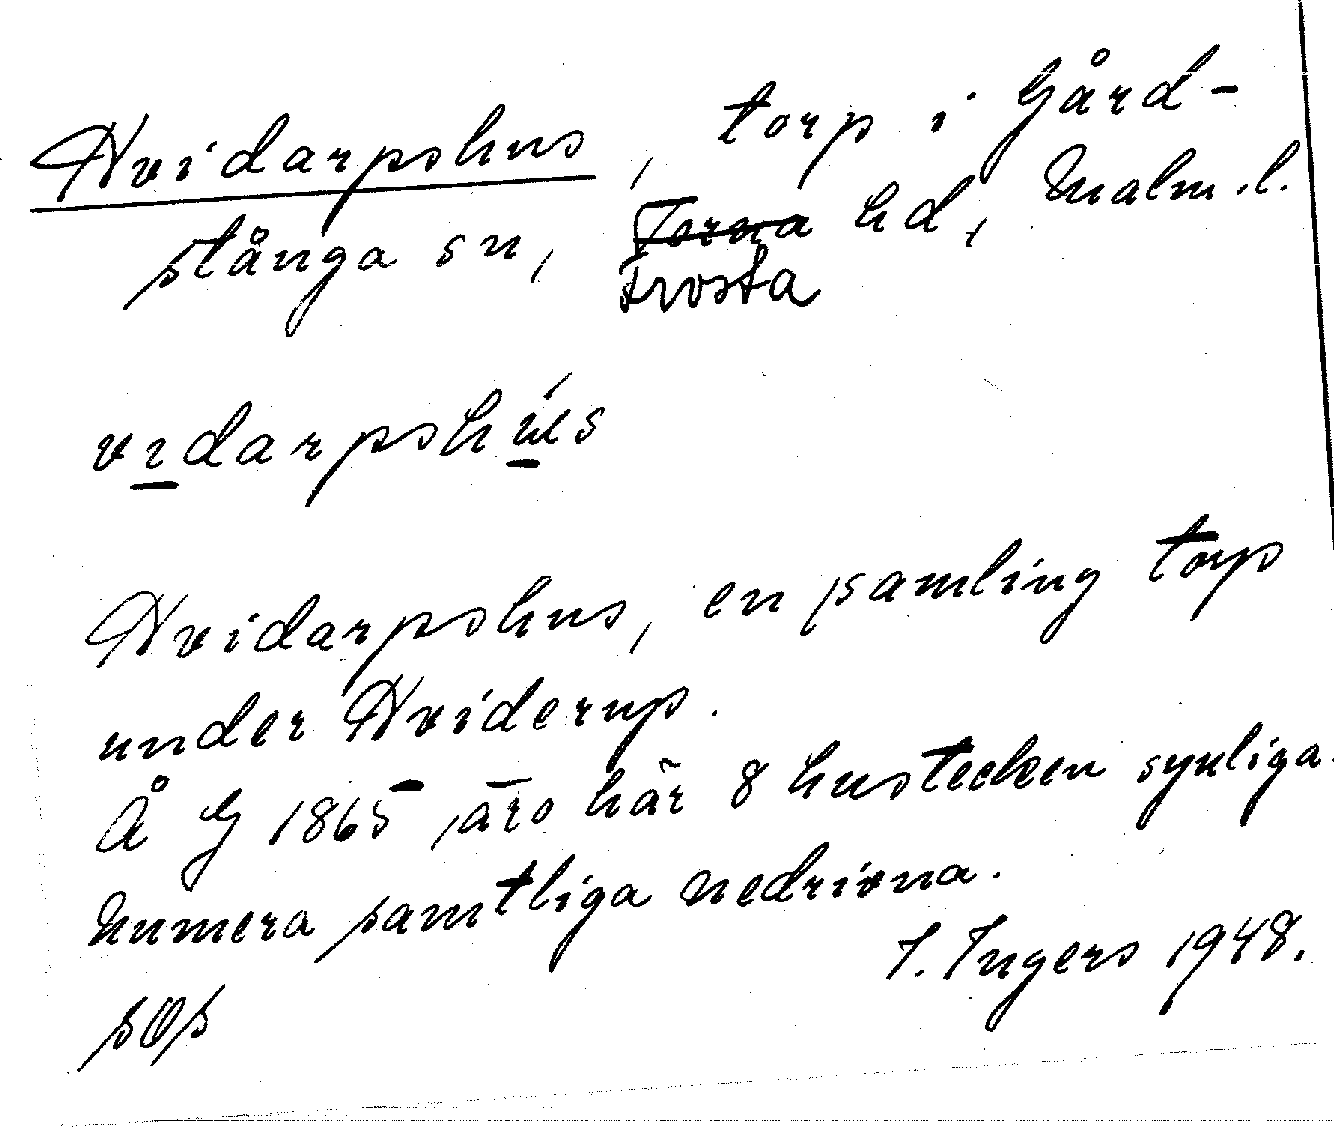 Hvidarpshus, torp i Gård-
stånga sn, Torna hd, Malm. l.
Frosta
vidarpshús
Hvidarpshus, en samling torp
under Hviderup.
Å G 1865 äro här 8 hustecken synliga.
Numera samtliga nedrivna.
I. Ingers 1948.